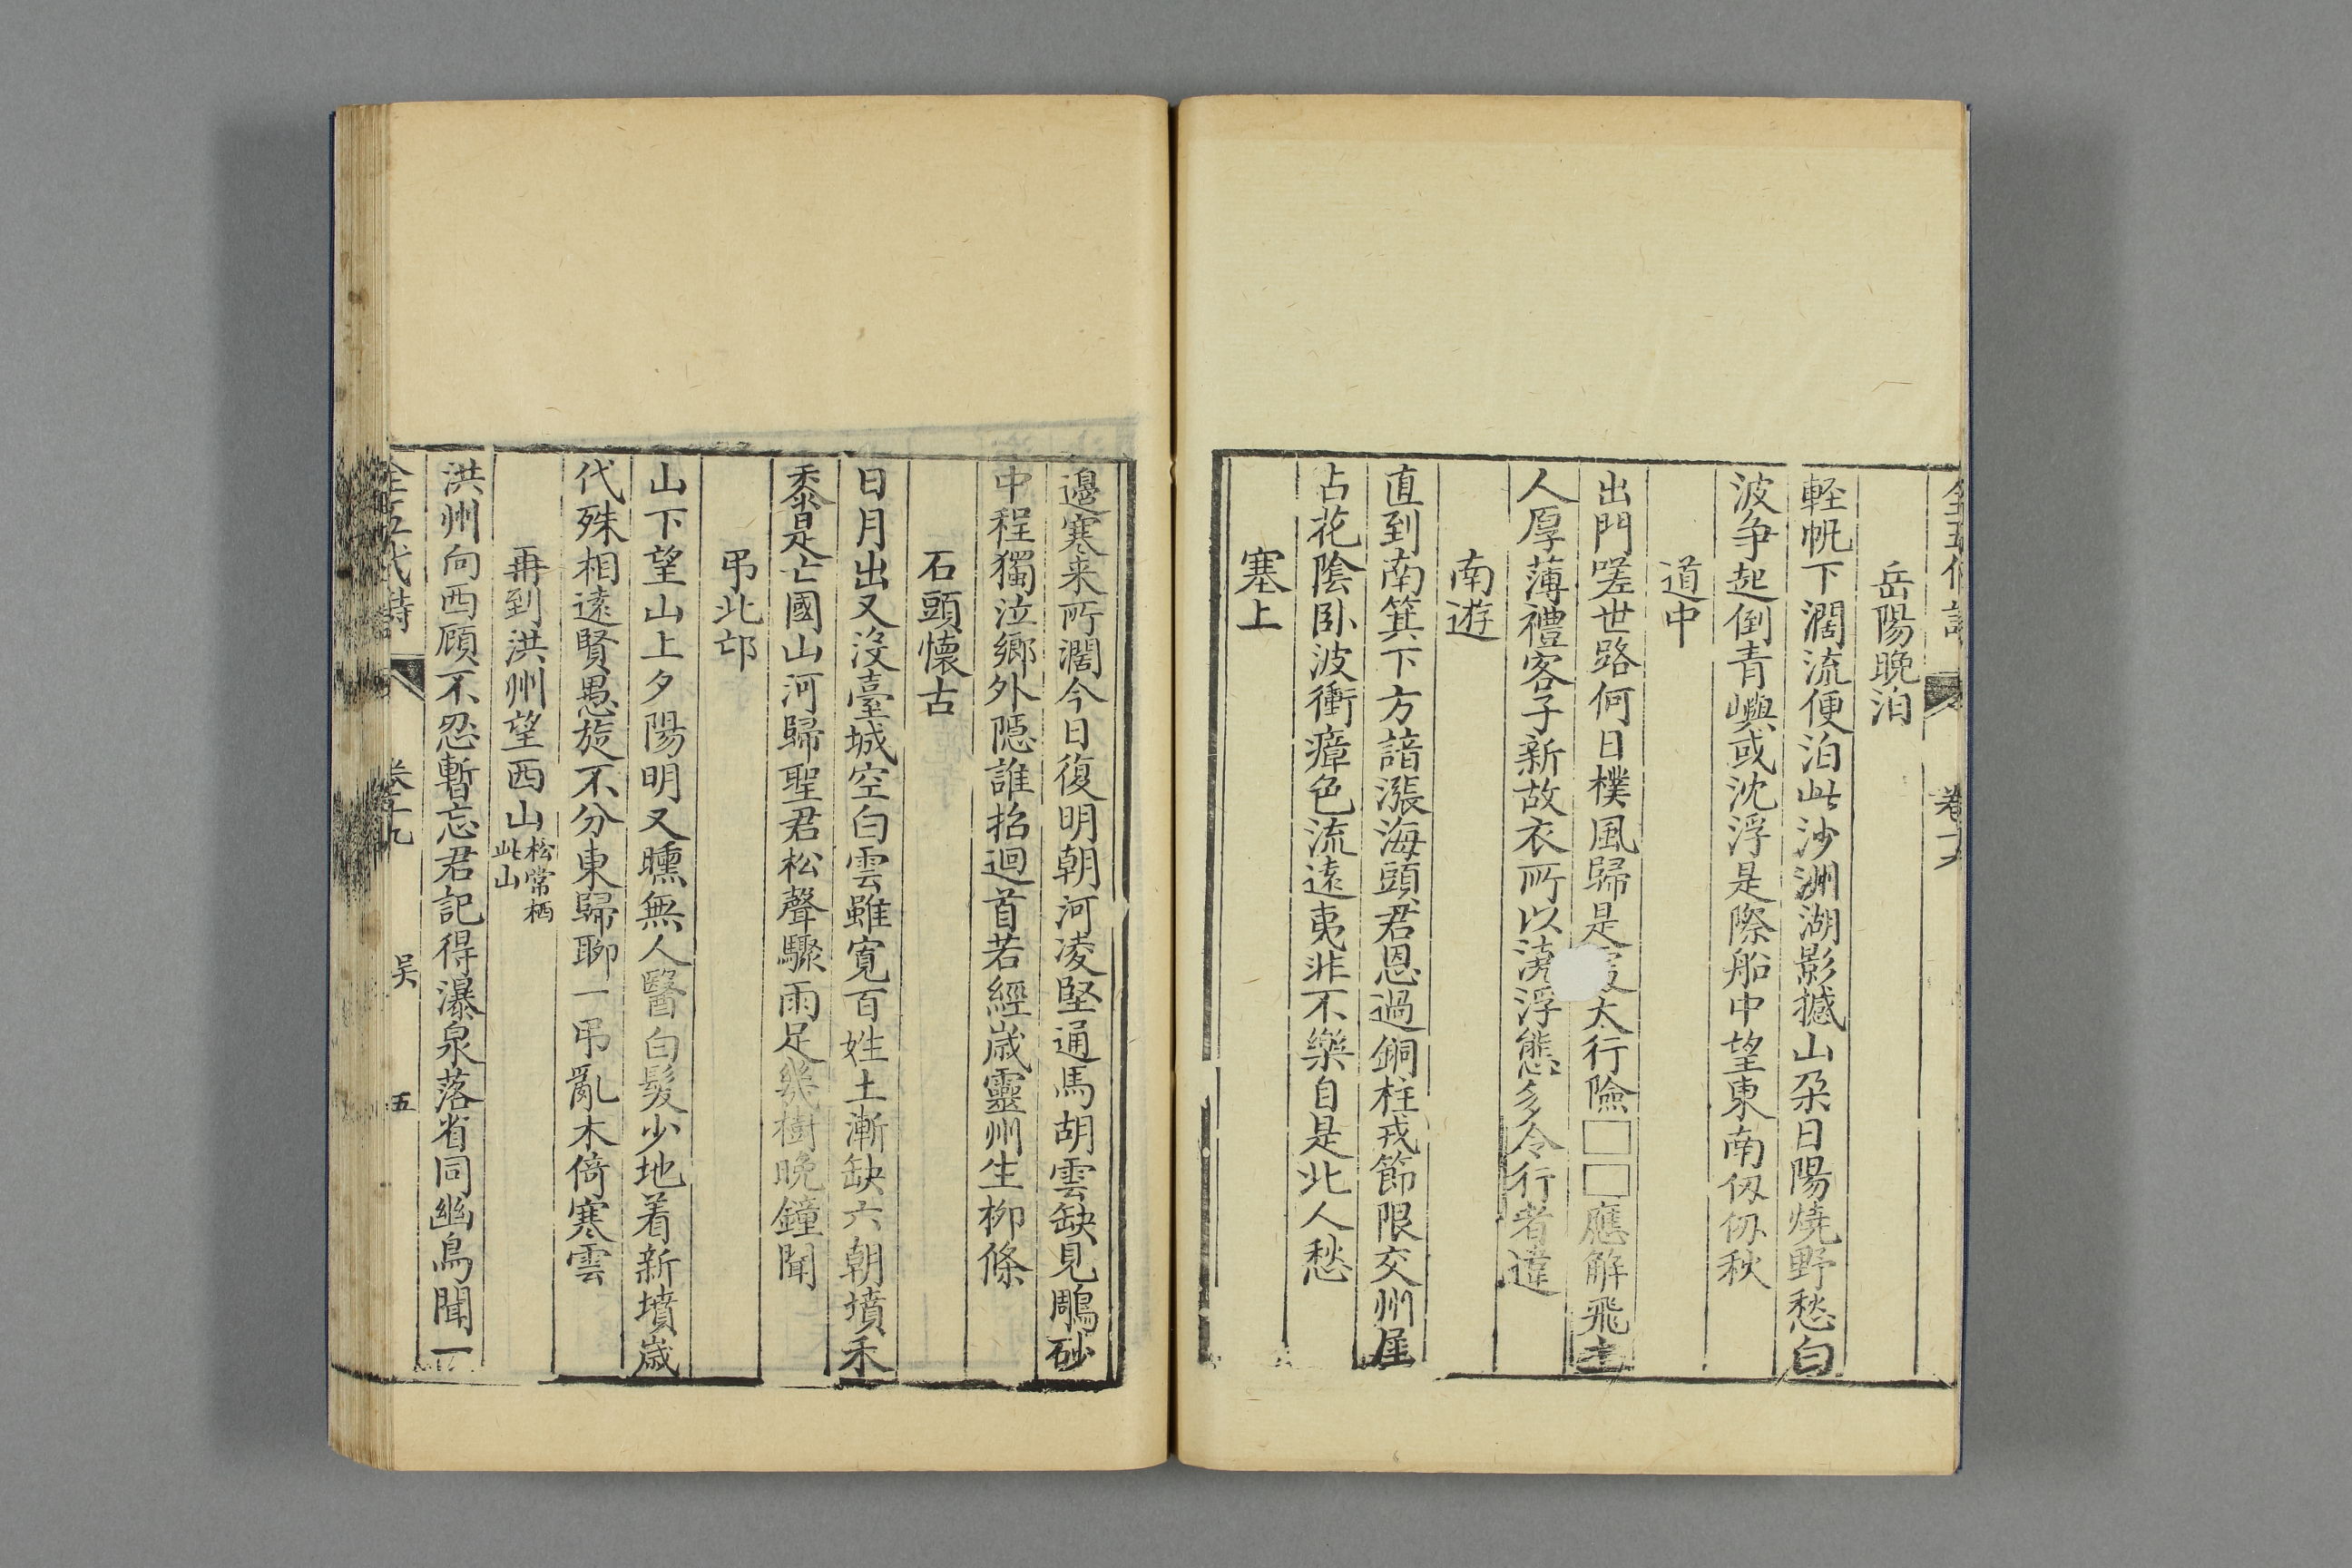 岳陽晚泊
輕帆下濶流便泊此沙洲湖影撼山朶日陽燒野愁白
波争起倒青嶼或沈浮是際船中望東南伋伋秋
道中
出門嗟世路何日樸風歸是太行險□□應解飛
人厚薄禮客子新故衣所以澆浮態多令行者違
南遊
直到南箕下方諳漲海頭君恩過銅柱戎節限交州
占花陰卧波衝瘴色流遠夷非不樂自是北人愁
塞上
邊寒来所濶今日復明朝河凌堅通馬胡雲缺見鵰砂
中程獨泣鄉外隱誰招迴首若經歳靈州生柳條
石頭懐古
日月出又沒臺城空白雲雖寛百姓土漸缺六朝墳禾
黍是亡國山河歸聖君松聲驟雨足幾樹晚鐘聞
弔北邙
山下望山上夕陽明又曛無人醫白髮少地着新墳歳
代殊相遠賢愚旋不分東歸聊一弔亂木倚寒雲
再到洪州望西山松常栖此山
洪州向西顧不忍暫忘君記得瀑泉落省同幽鳥聞一
全五代詩 卷十九 吴 五